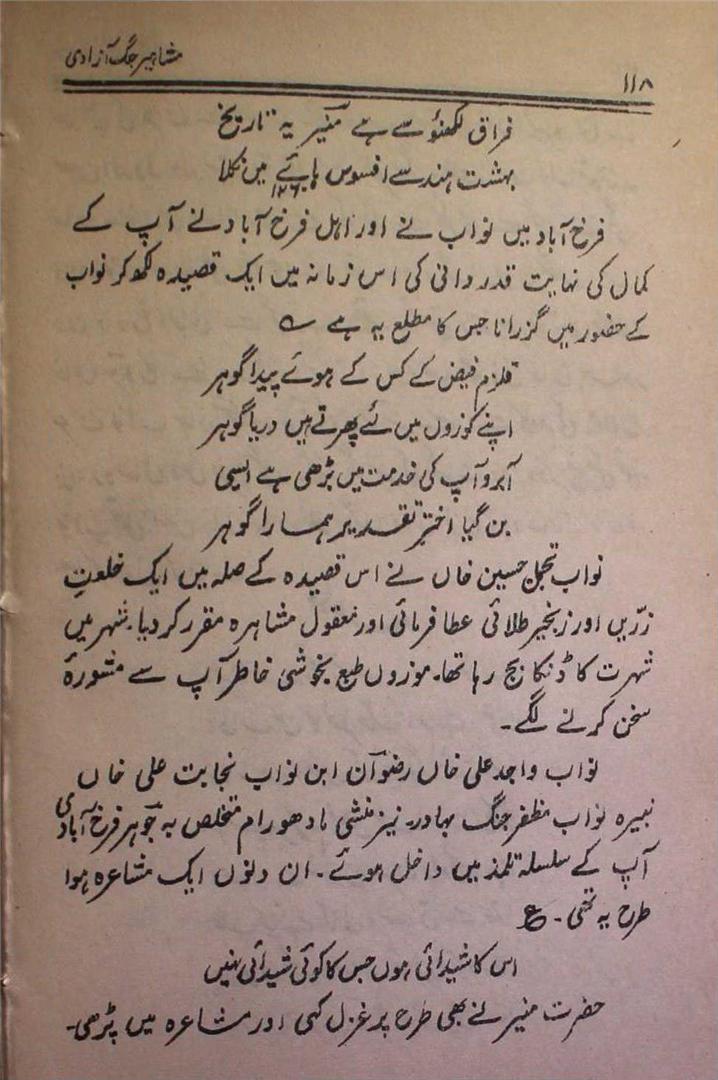 مشاہیر جنگ آزادی
۱۱۸
فراق لکھنؤ سے ہے منیر یہ تاریخ
بہشت ہند سے افسوس ہائے میں نکلا
فرخ آباد میں نواب نے اور اہل فرخ آباد نے آپ کے
کمال کی نہایت قدردانی کی اس زمانہ میں ایک قصیدہ لکھ کر نواب
کے حضور میں گزرانا جس کا مطلع یہ ہے ؎
قلزم فیض کے کس کے ہوئے پیدا گوہر
اپنے کوزوں میں لئے پھرتے ہیں دریا گوہر
آبرو آپ کی خدمت میں بڑھی ہے ایسی
بن گیا اخترِ تقدیر ہمارا گوہر
نواب تجمل حسین خاں نے اس قصیدہ کے صلہ میں ایک خلعتِ
زرّیں اور زنجیر طلائی عطا فرمائی اور معقول مشاہرہ مقرر کر دیا۔ شہر میں
شہرت کا ڈنکا بج رہا تھا۔ موزوں طبع بخوشی خاطر آپ سے مشورۂ
سخن کرنے لگے۔
نواب واجد علی خاں رضوآن ابن نواب نجابت علی خاں
نبیرہ نواب مظفر جنگ بہادر۔ نیز منشی مادھو رام متخلص بہ جوہر فرخ آبادی
آپ کے سلسلہ تلمذ میں داخل ہوئے۔ ان دنوں ایک مشاعرہ ہوا
طرح یہ تھی۔ ع
اس کا شیدائی ہوں جس کا کوئی شیدائی نہیں
حضرت منیر نے بھی طرح پر غزل کہی اور مشاعرہ میں پڑھی۔